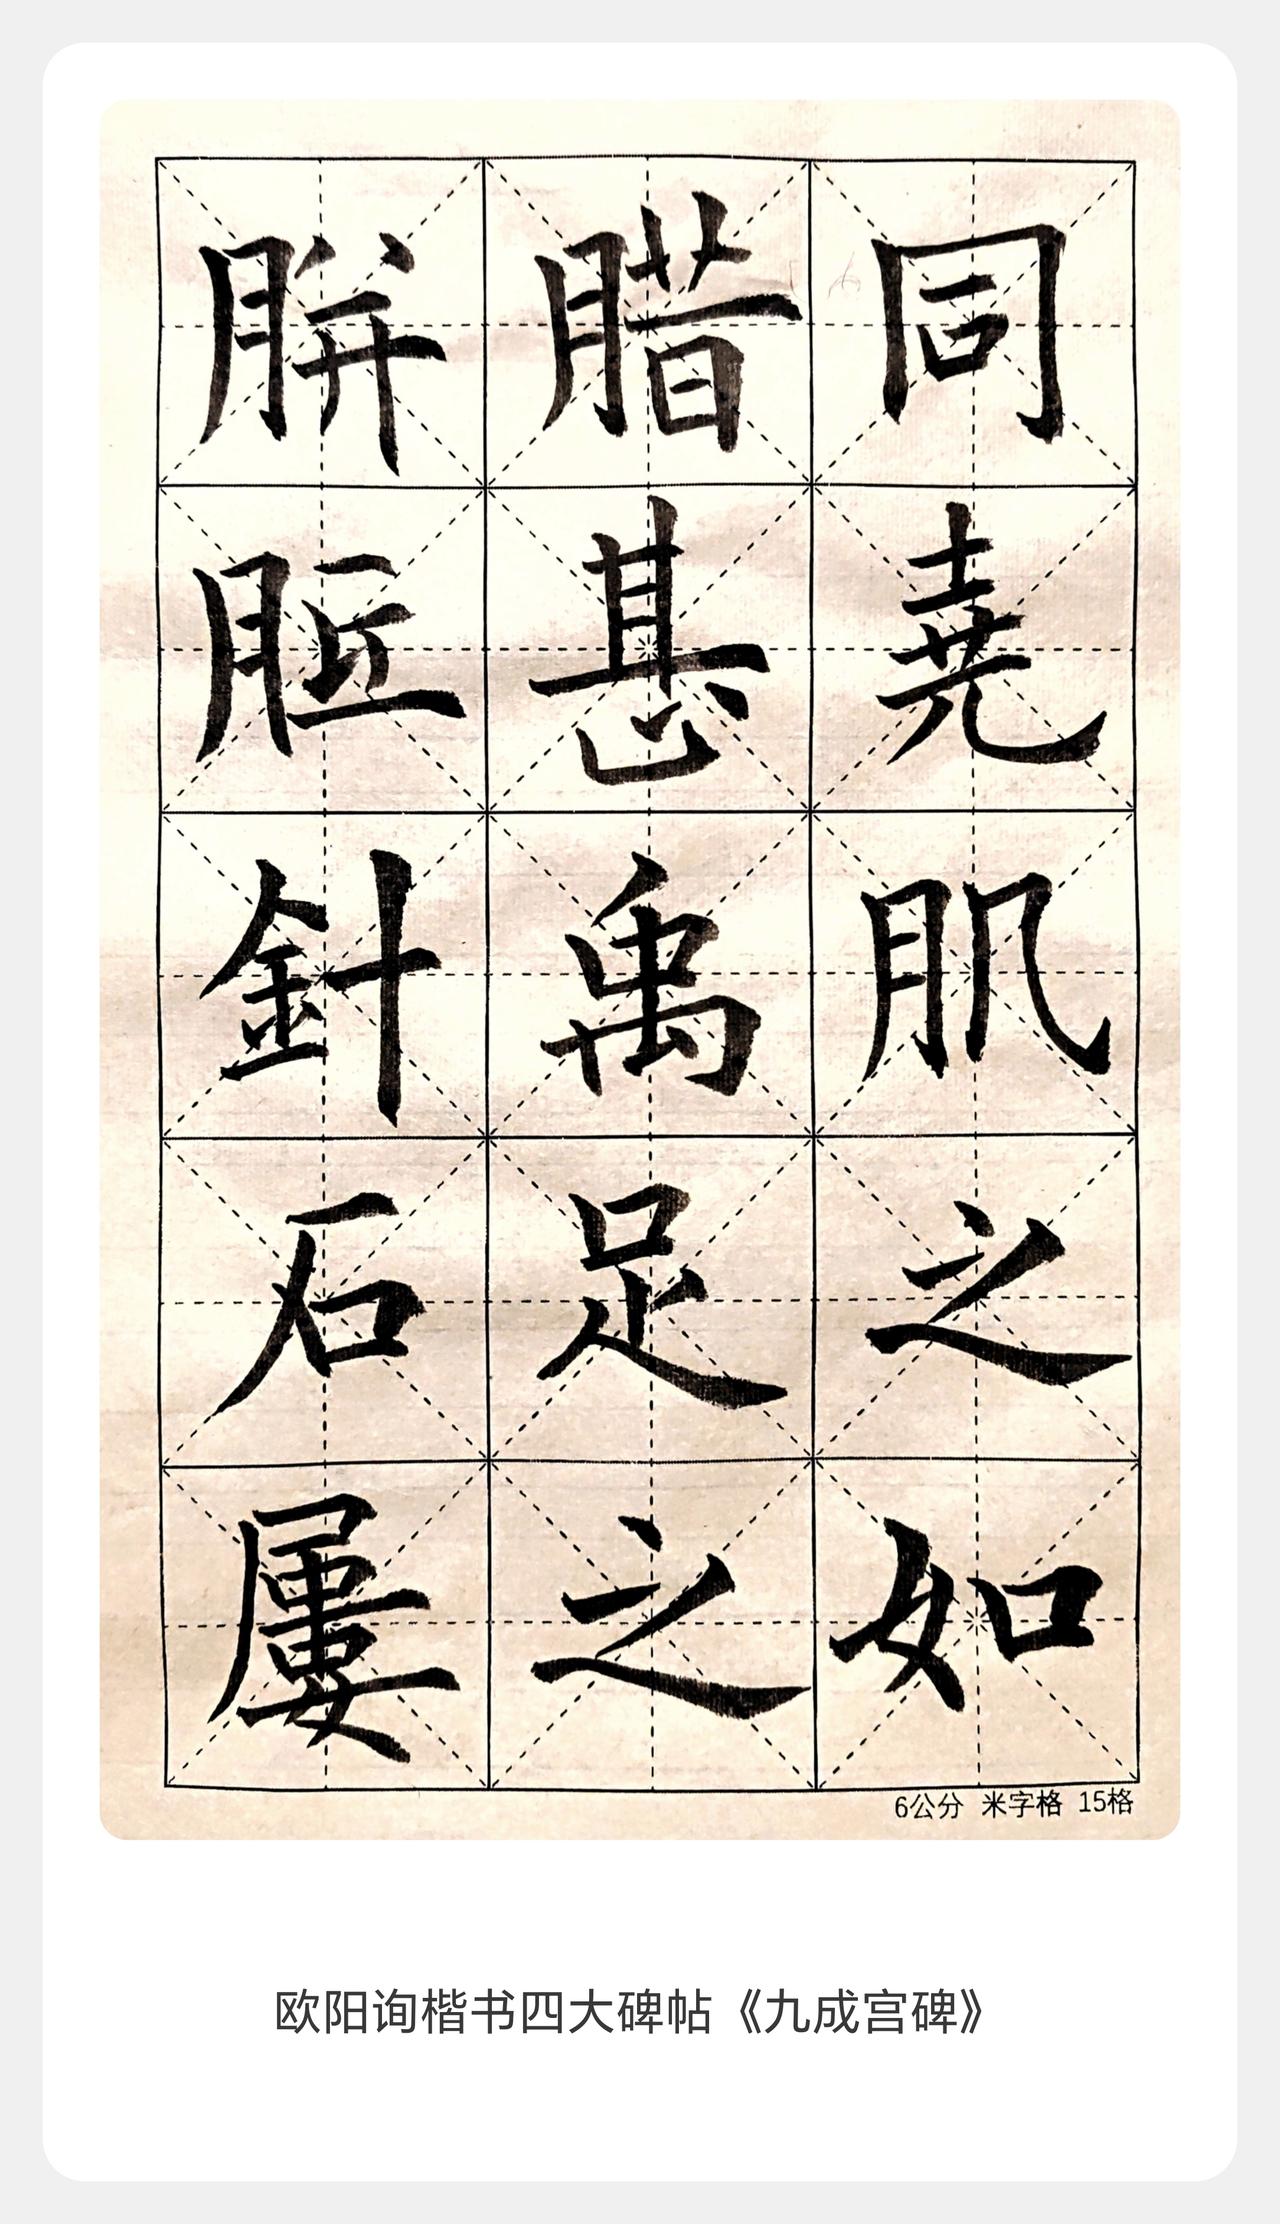 同堯肌之如
腊甚禹足之
胼胝針石屢
6公分 米字格 15格
欧阳询楷书四大碑帖《九成宫碑》